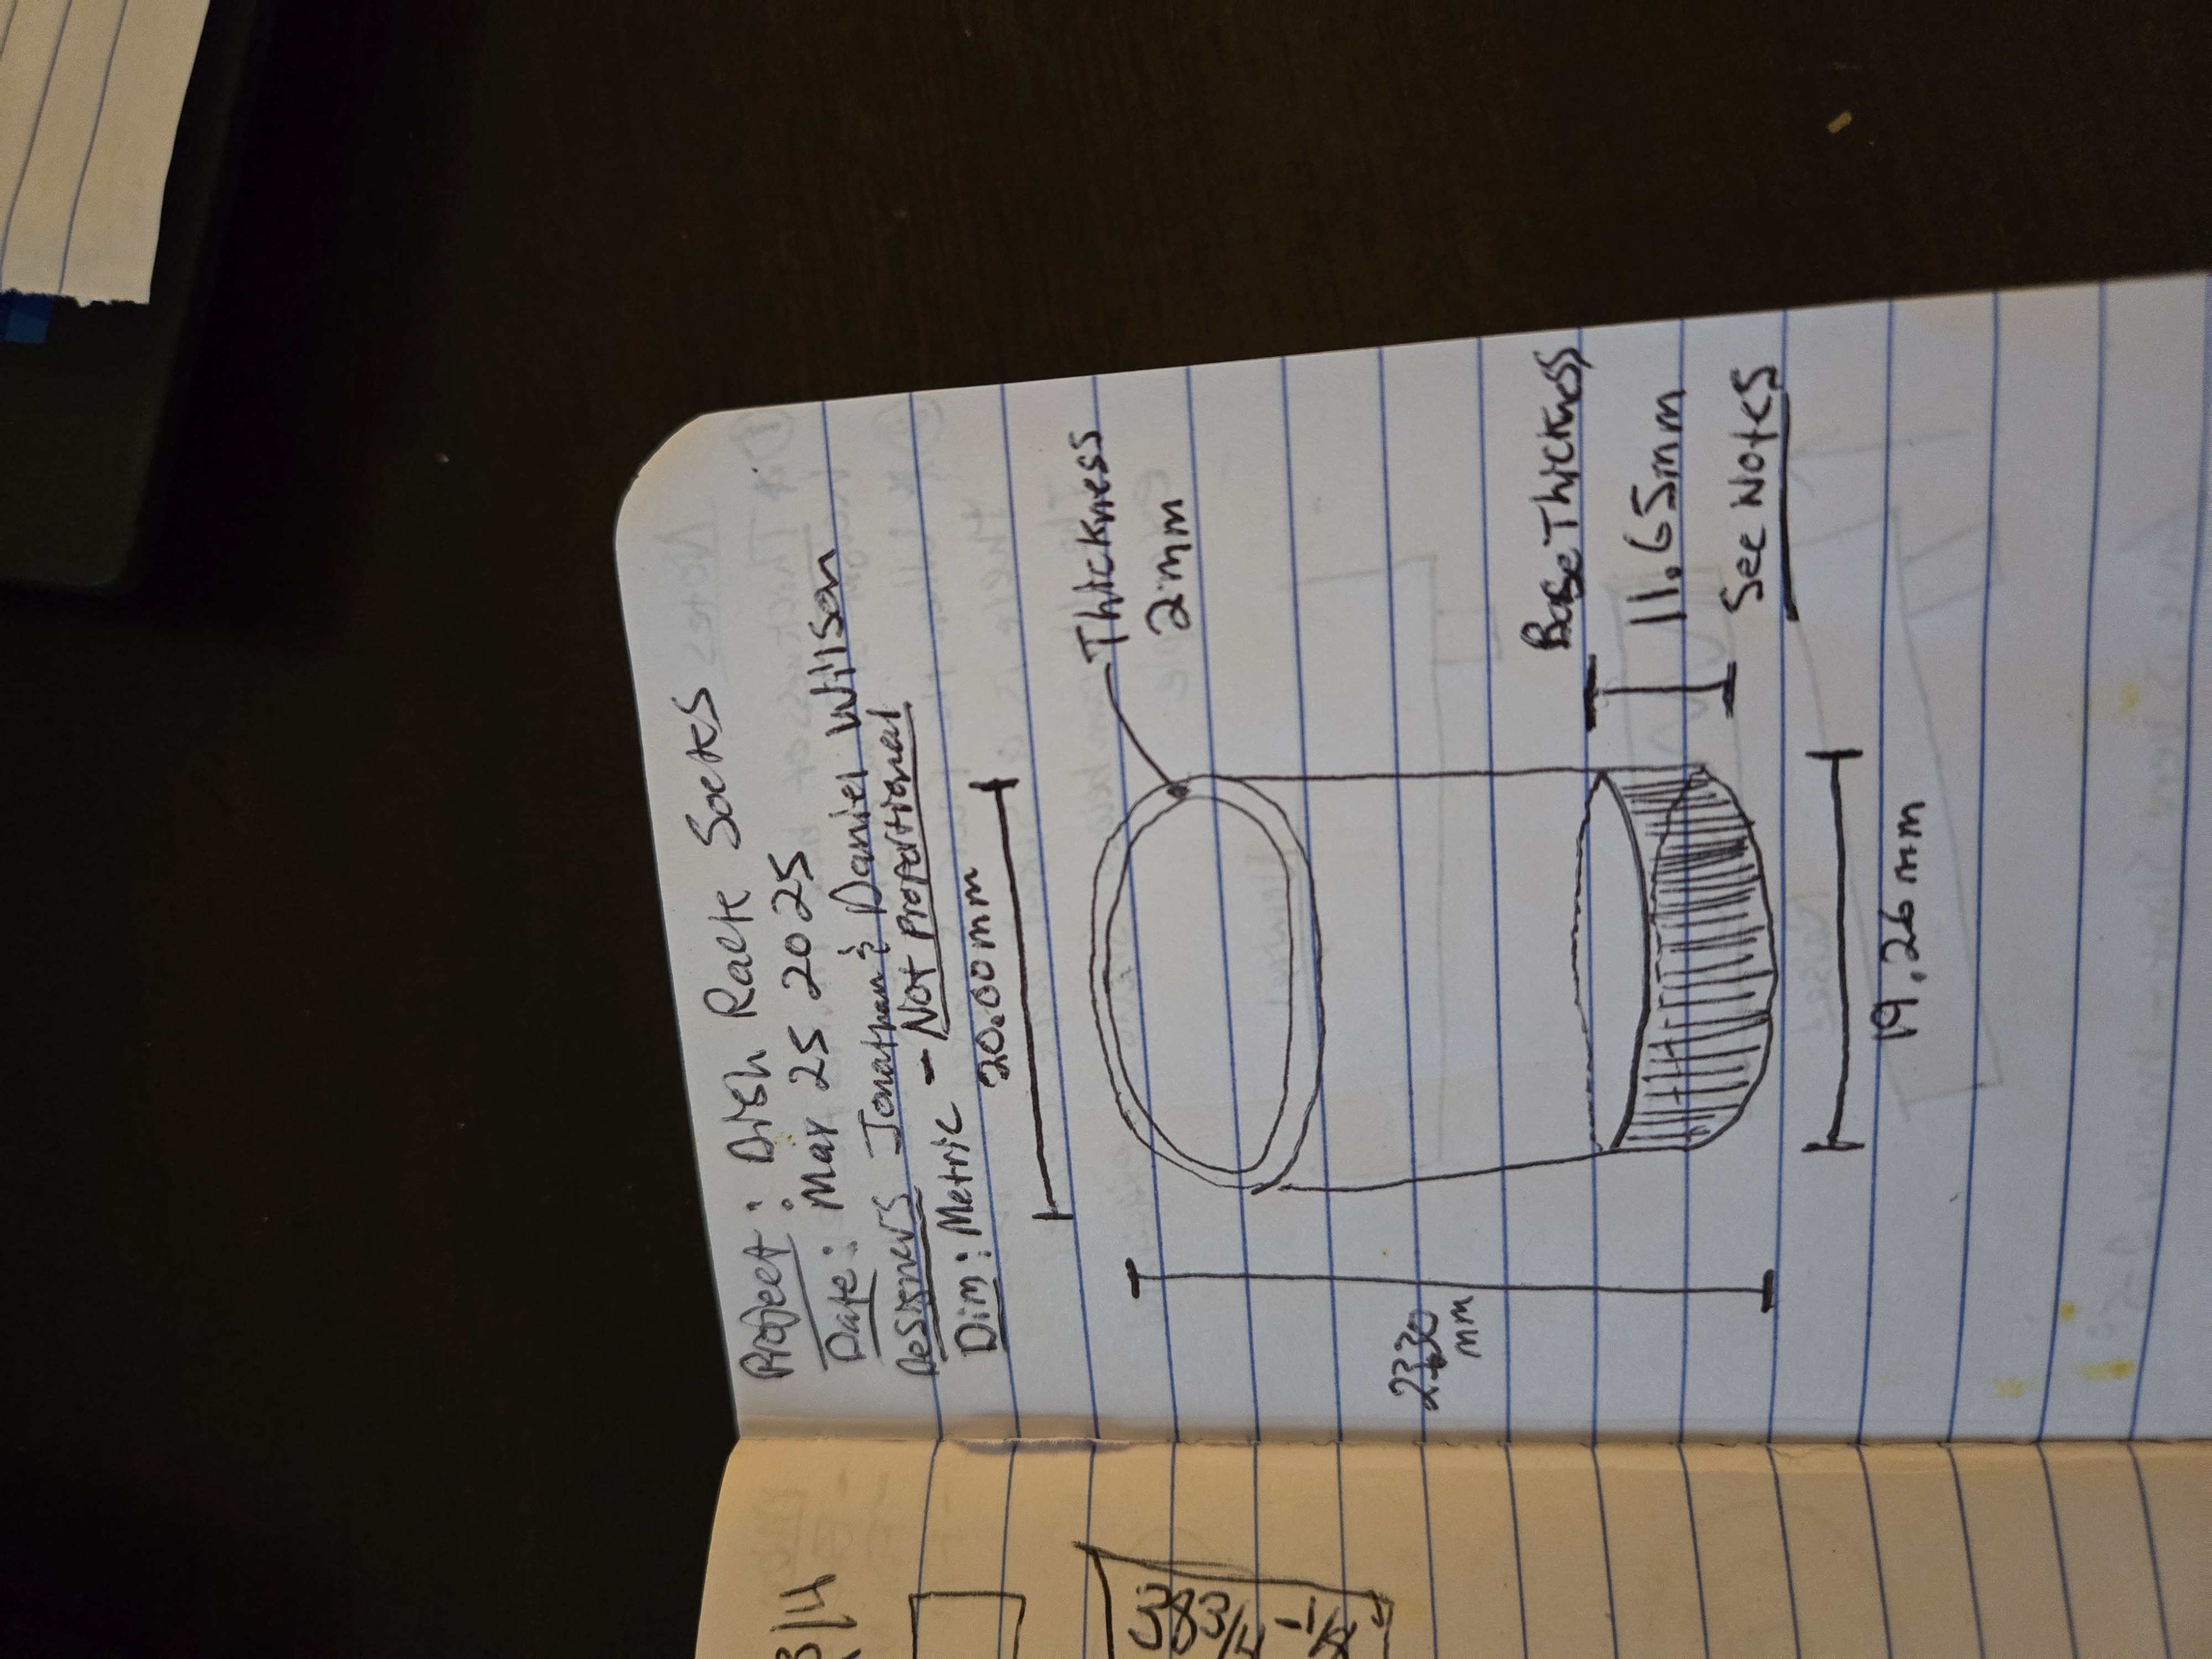 Project: Dish Rack Socks
Date: Mar 25 2025
Designers Jonathan & Daniel Wilson
Dim: Metric - Not Proportional
20.00mm
Thickness
2mm
23.30
mm
Base Thickness
11.65mm
See Notes
19.26mm
3/4
38 3/4 -
Notes
Raised